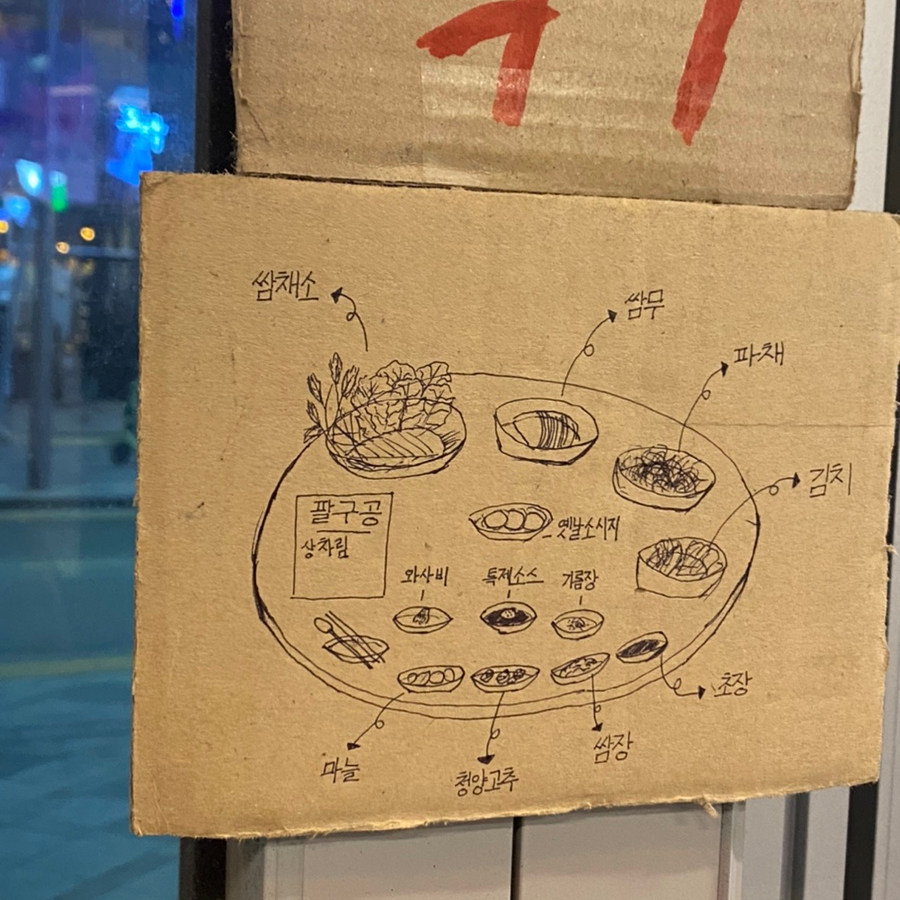 쌈채소
쌈무
파채
김치
팔구공
상차림
옛날소시지
와사비
특제소스
기름장
초장
쌈장
마늘
청양고추